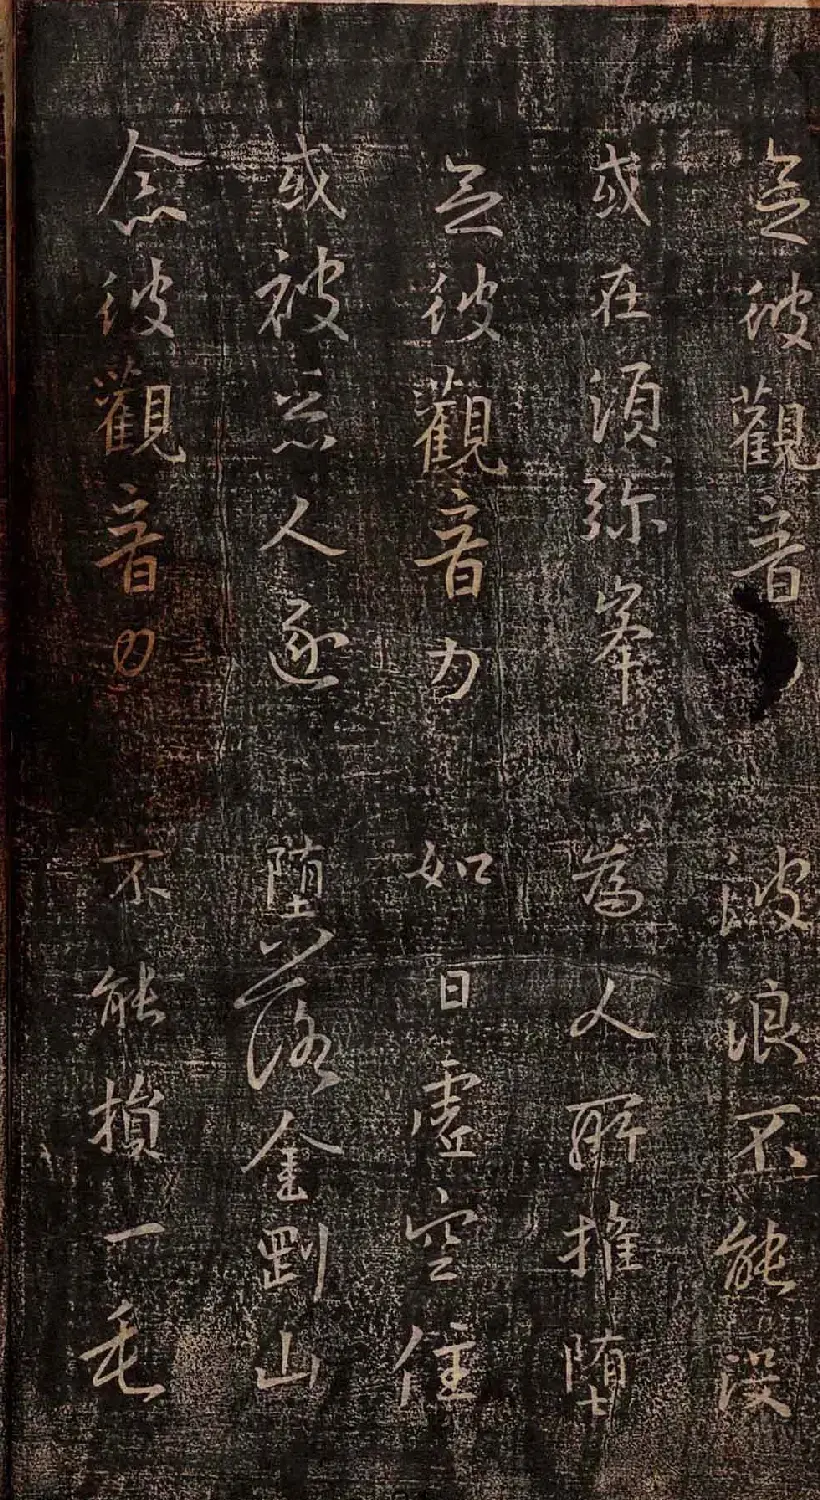 念彼觀音 波浪不能没
或在須弥峯 為人所推墮
念彼觀音力 如日虛空住
或被惡人逐 墮落金剛山
念彼觀音力 不能損一毛